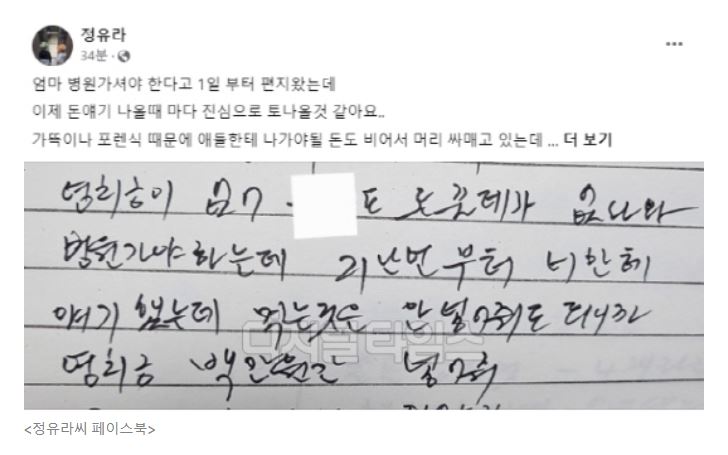 정유라
34분 ·
엄마 병원가셔야 한다고 1일 부터 편지왔는데
이제 돈얘기 나올때 마다 진심으로 토나올것 같아요..
가뜩이나 포렌식 때문에 애들한테 나가야될 돈도 비어서 머리 싸매고 있는데 ... 더 보기
병원가야하는데 지난번부터 너한테
얘기 했는데 먹는것은 안 넣어줘도 되니까
영치금 백만원만 넣어줘
디지털타임스
<정유라씨 페이스북>